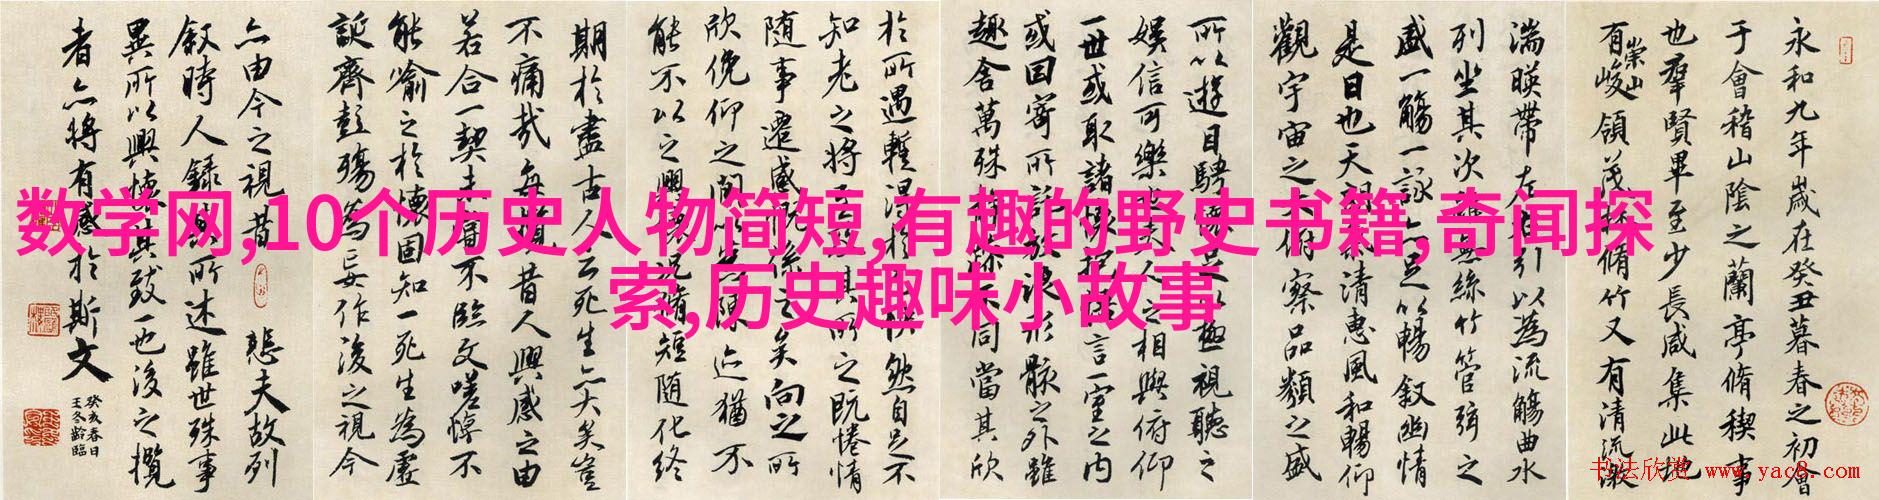 数学网,10个历史人物简短,有趣的野史书籍,奇闻探
索,历史趣味小故事
永和九年歲在癸丑暮春之初會
于會稽山陰之蘭亭脩稧事
也羣賢畢至少長咸集此地
有崇山峻領茂林脩竹又有清流激
湍暎帶左右引以為流觴曲水
列坐其次雖無絲竹管弦之
盛一觴一詠亦足以暢敘幽情
是日也天朗氣清惠風和暢仰
觀宇宙之大俯察品類之盛
所以遊目騁懷足以極視聽之
娛信可樂也夫人之相與俯仰
一世或取諸懷抱悟言一室之內
或因寄所託放浪形骸之外雖
趣舍萬殊靜躁不同當其欣
於所遇暫得於己快然自足不
知老之將至及其所之既惓情
随事遷感慨係之矣向之所
欣俛仰之間以為陳迹猶不
能不以之興懷況脩短随化終
期於盡古人云死生亦大矣豈
不痛哉每攬昔人興感之由
若合一契未嘗不臨文嗟悼不
能喻之於懷固知一死生為虛
誕齊彭殤為妄作後之視今
亦由今之視昔悲夫故列
敘時人錄其所述雖世殊事
異所以興懷其致一也後之攬
者亦將有感於斯文
癸亥春日
王冬齡臨
书法欣赏 www.yac8.com